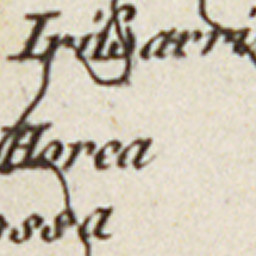 Irißarri
Horca
ossa